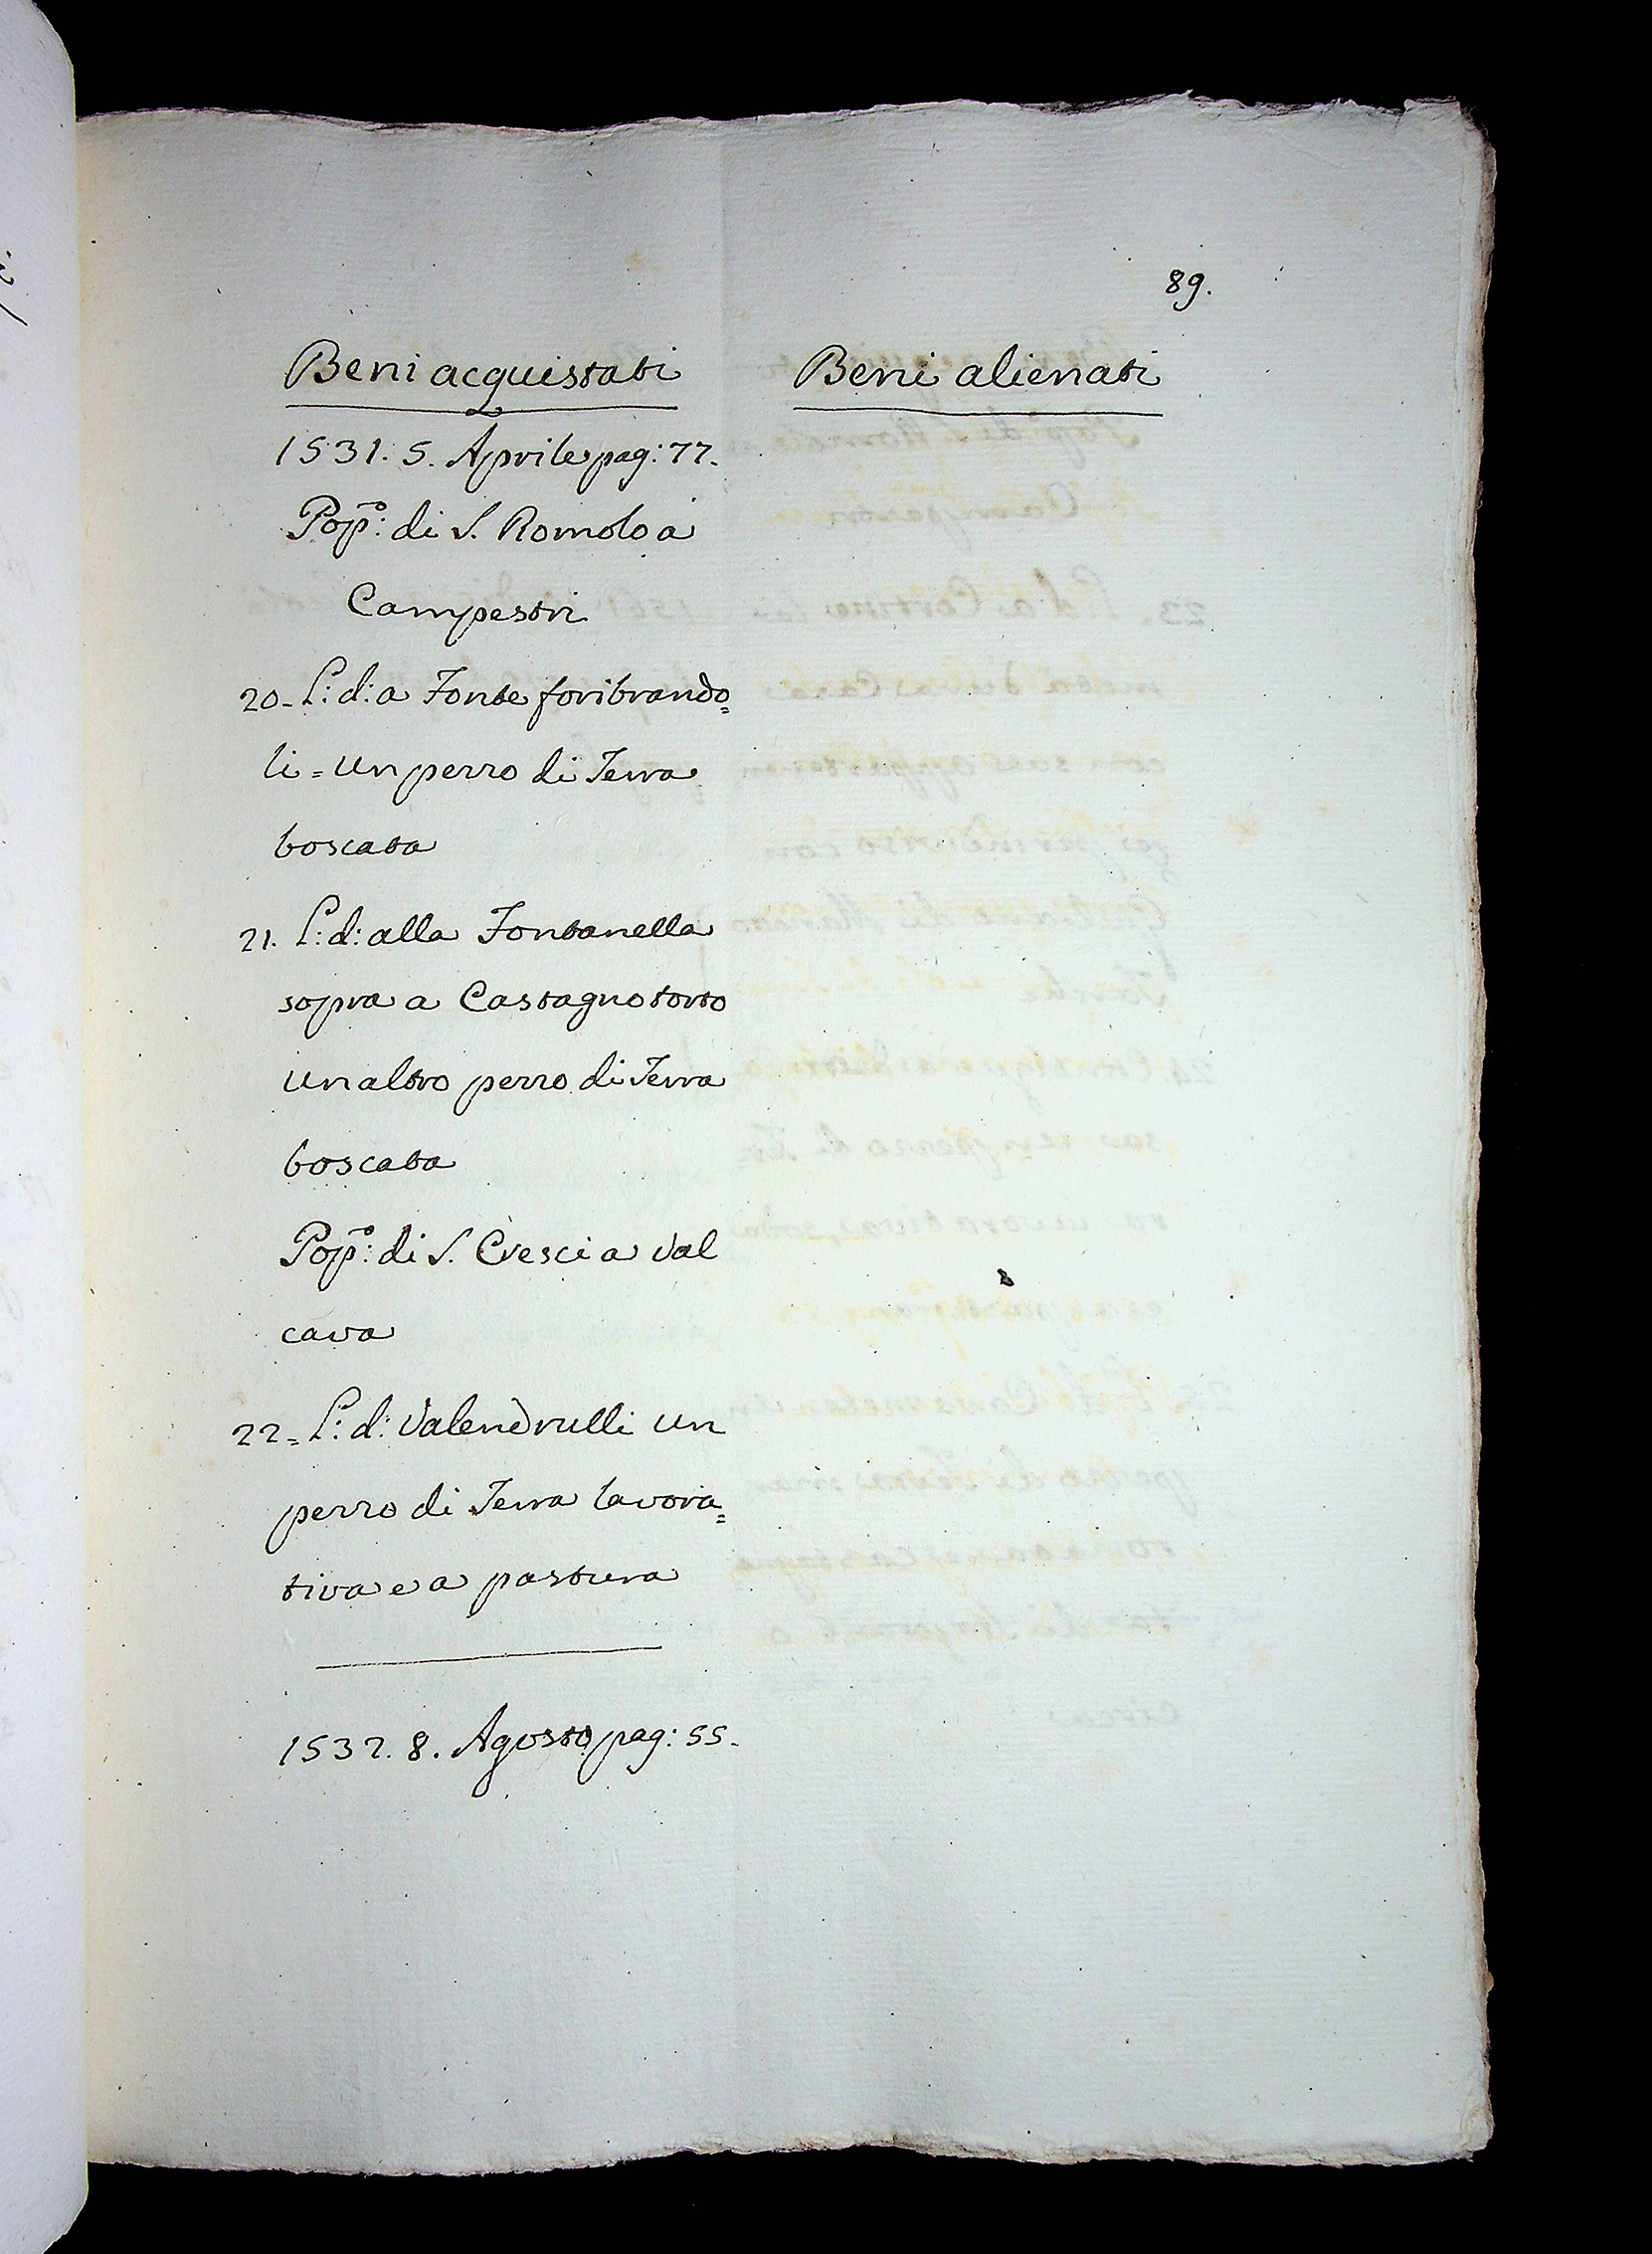 89.
Beni acquistati
Beni alienati
1531. 5. Aprile pag: 77.
Pop:º di S. Romolo a
Campestri
20. L: d: a Fonte foribrando=
li = un pezzo di Terra
boscata
21. L: d: alla Fontanella
sopra a Castagnotorto
un altro pezzo di Terra
boscata
Pop:º di S. Cresci a Val
cava
22. L: d: Valendrulli un
pezzo di Terra lavora=
tiva e a pastura
1532. 8. Agosto pag: 55.